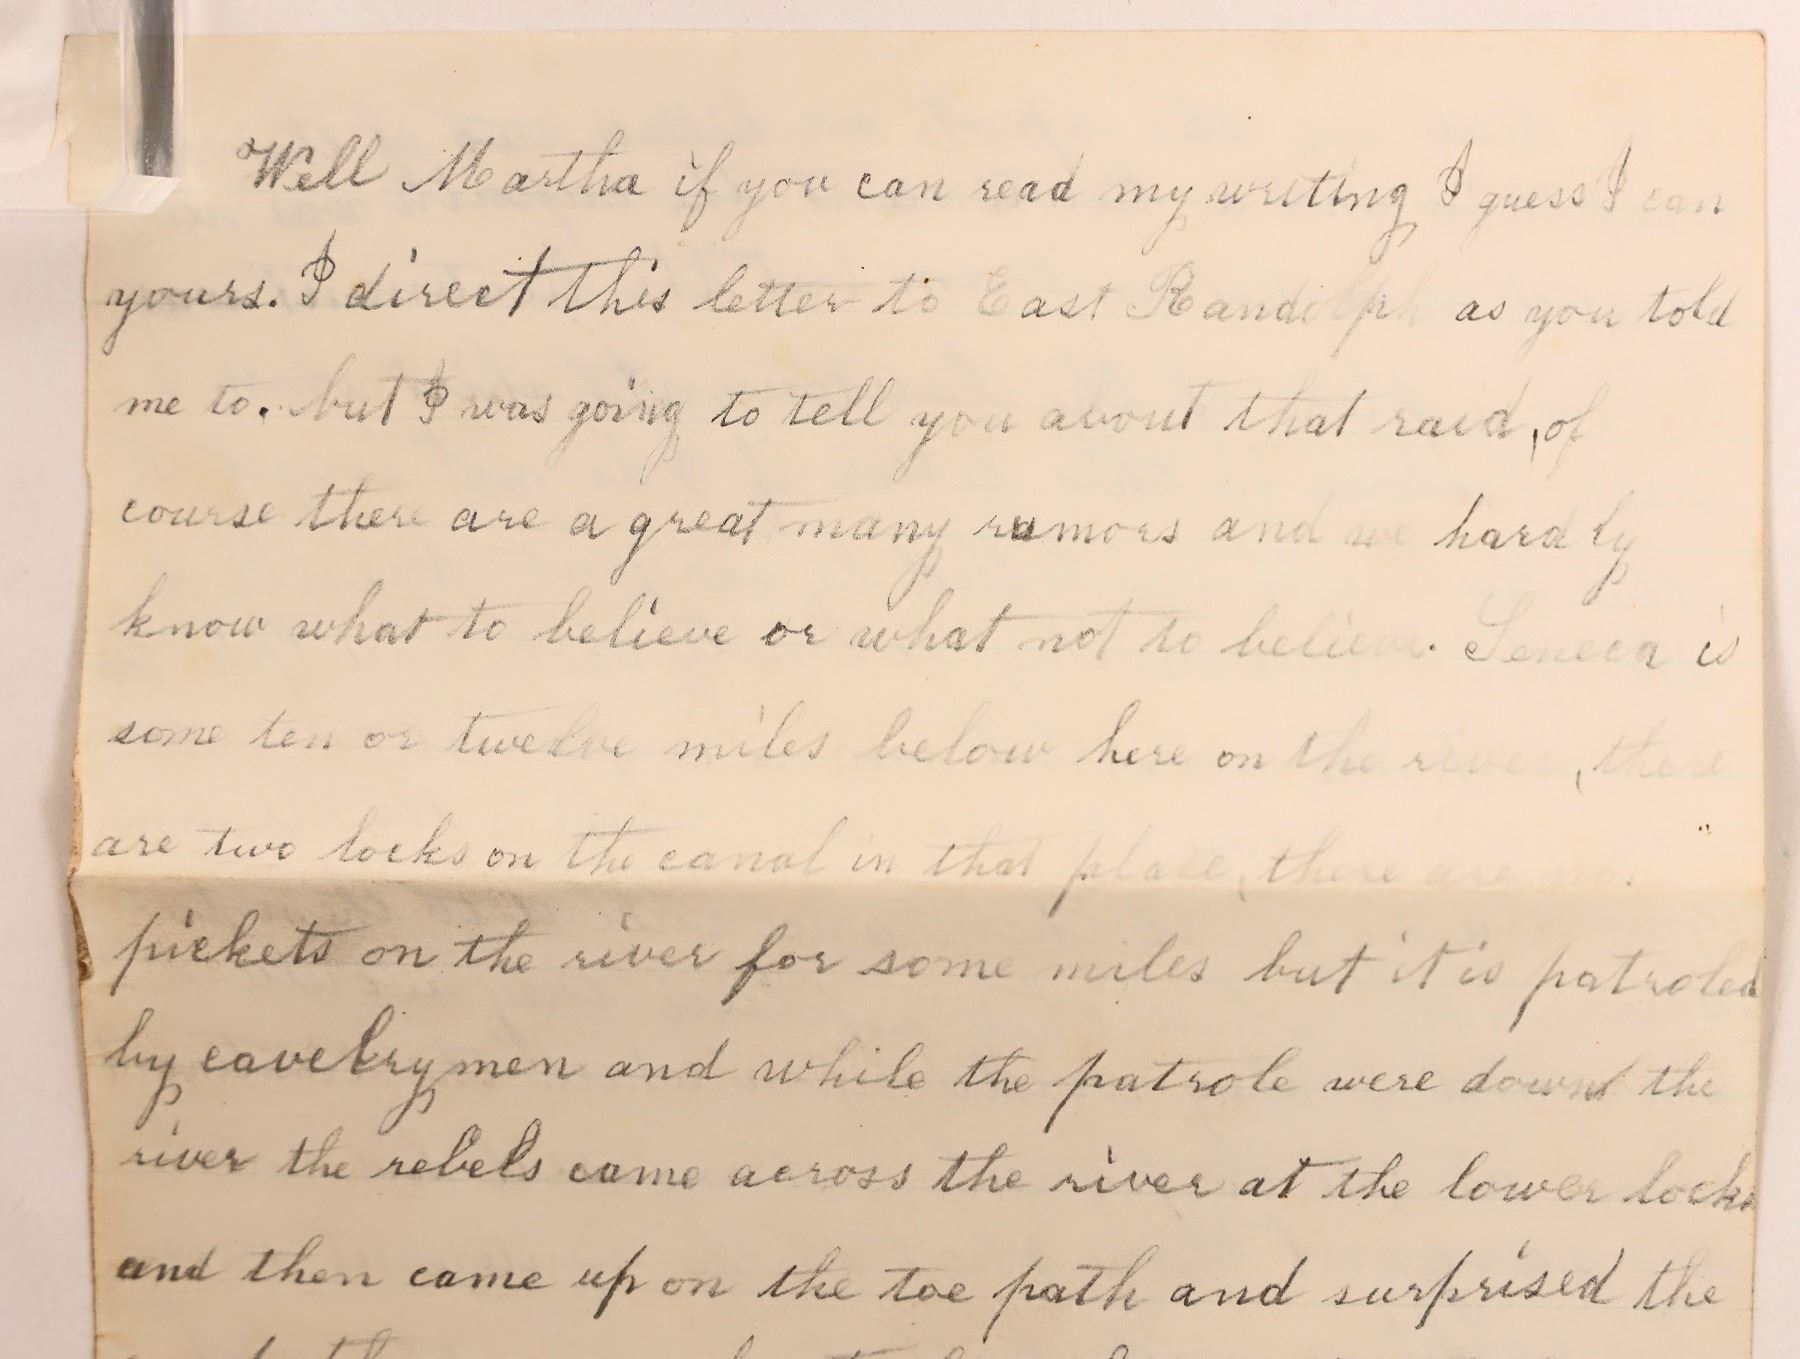 Well Martha if you can read my writing I guess I can
yours. I direct this letter to East Randolph as you told
me to. but I was going to tell you about that raid, of
course there are a great many rumors and we hardly
know what to believe or what not to believe. Seneca is
some ten or twelve miles below here on the river, there
are two locks on the canal in that place, there are no.
pickets on the river for some miles but it is patroled
by cavelrymen and while the patrole were down the
river the rebels came across the river at the lower locks
and then came up on the toe path and surprised the